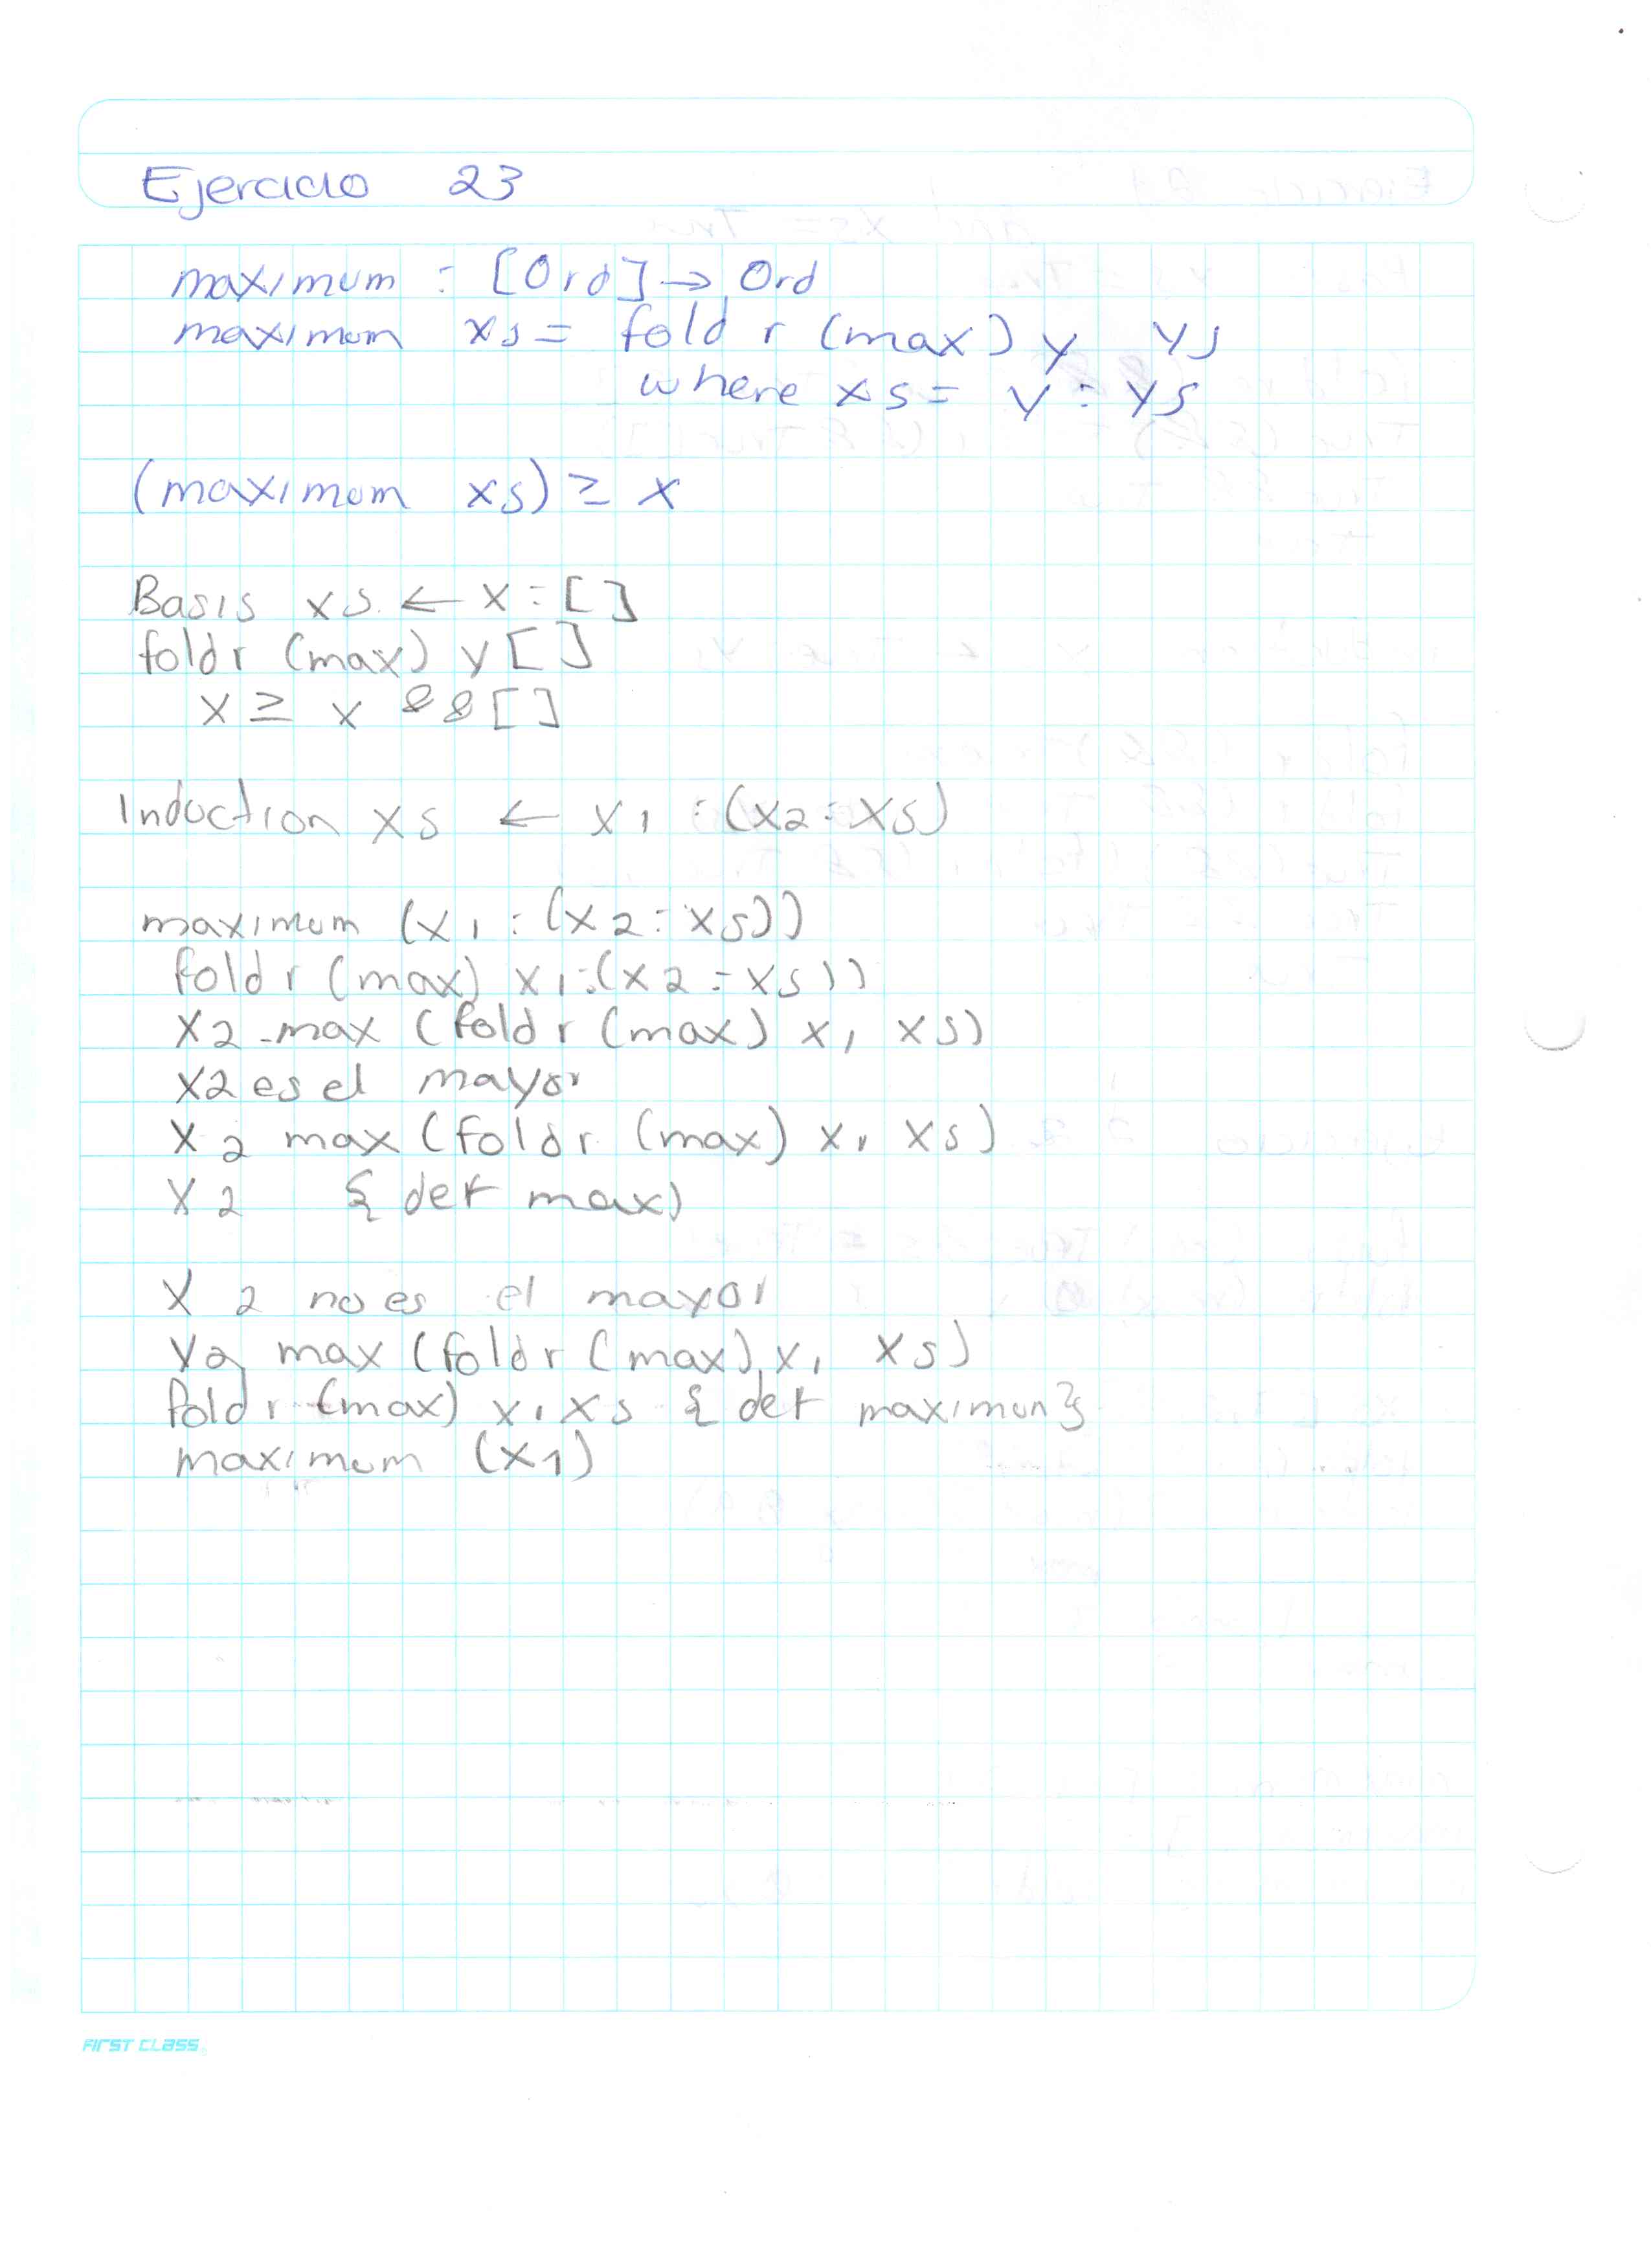 Ejercicio 23
maximum : [Ord] → Ord
maximum xs = foldr (max) y ys
where xs = y : ys
(maximum xs) ≥ x
Basis xs ← x : []
foldr (max) y []
x ≥ x && []
Induction xs ← x1 : (x2 : xs)
maximum (x1 : (x2 : xs))
foldr (max) x1 : (x2 : xs))
x2 max (foldr (max) x1 xs)
x2 es el mayor
x2 max (foldr (max) x1 xs)
x2 { def max)
x2 no es el mayor
x2 max (foldr (max) x1 xs)
foldr (max) x1 xs { def maximun}
maximum (x1)
FIRST CLASS